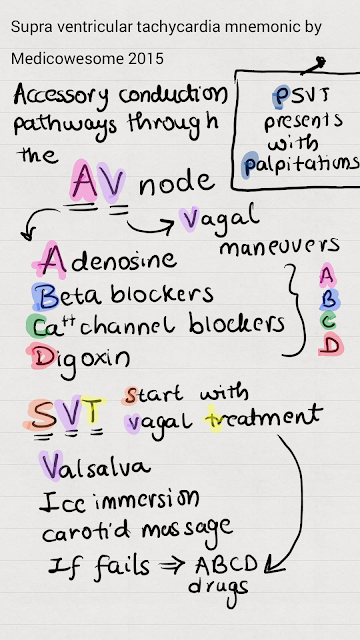 Supra ventricular tachycardia mnemonic by
Medicowesome 2015
Accessory conduction
pathways through
the
AV node
PSVT
presents
with
palpitations
Vagal
maneuvers
Adenosine
Beta blockers
Ca++ channel blockers
Digoxin
A
B
C
D
SVT
Start with
vagal treatment
Valsalva
Ice immersion
carotid massage
If fails ⇒ ABCD
drugs